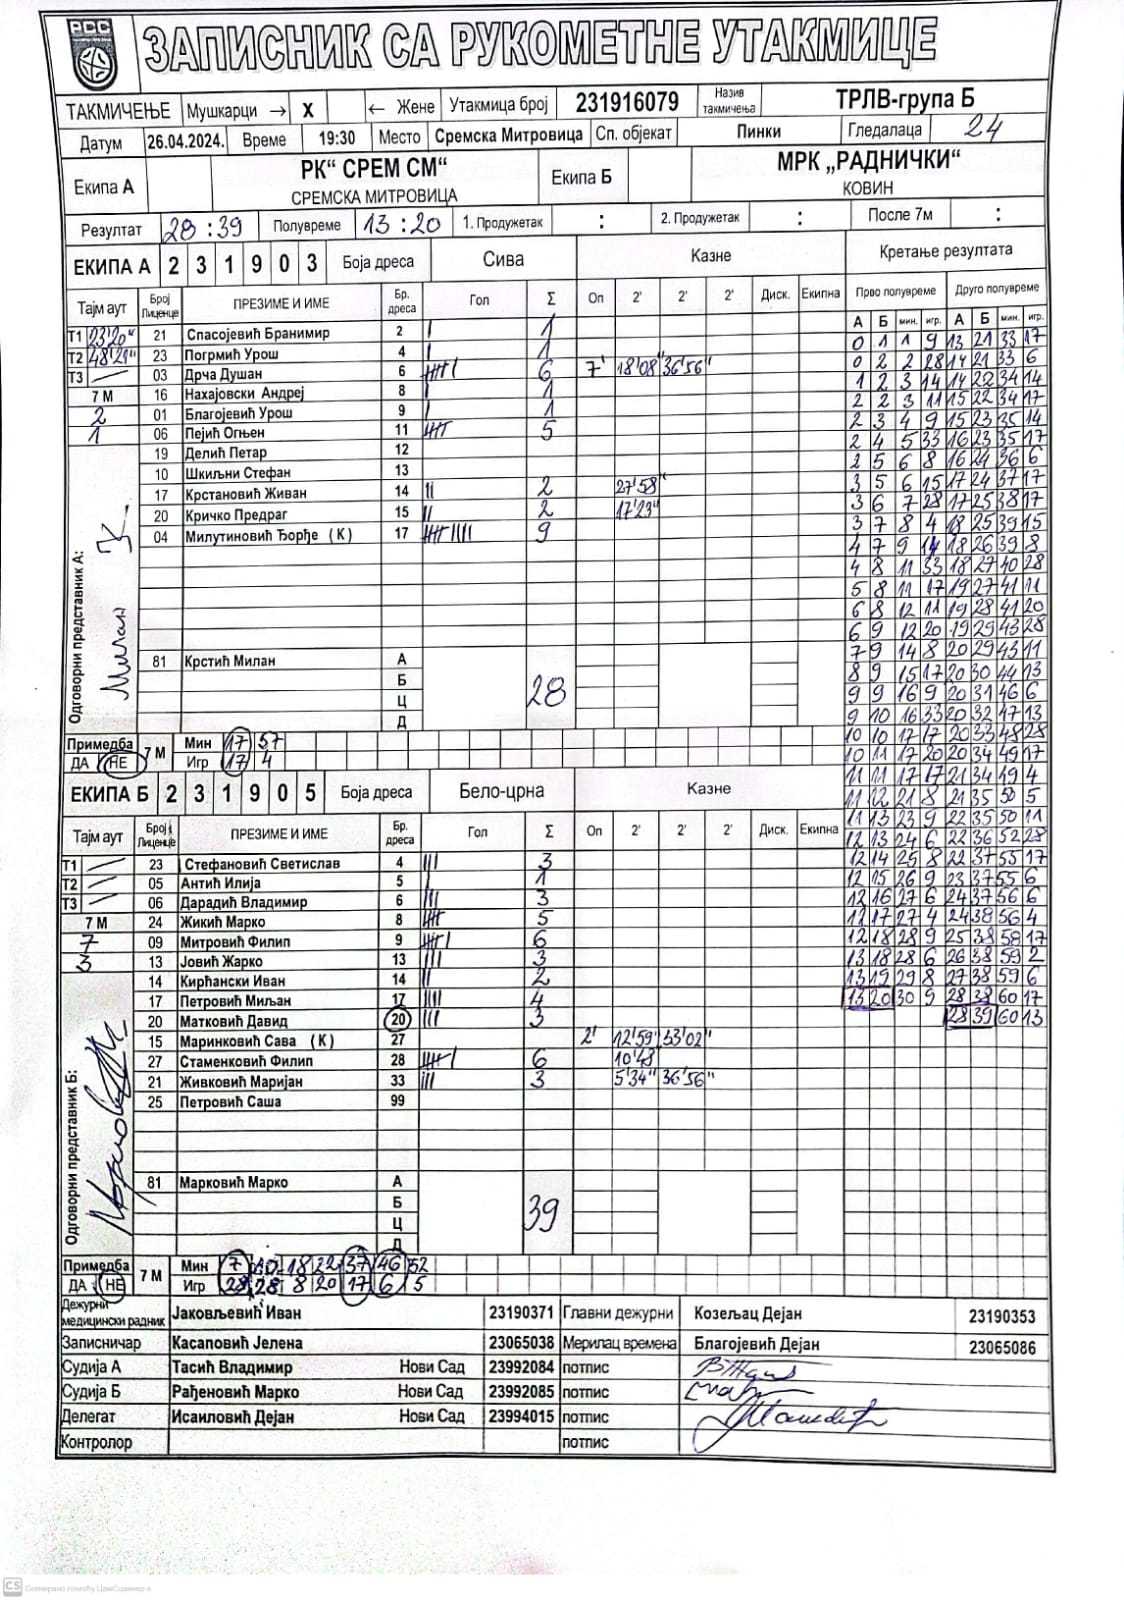 РСС
ЗАПИСНИК СА РУКОМЕТНЕ УТАКМИЦЕ
ТАКМИЧЕЊЕ Мушкарци → X ← Жене Утакмица број 231916079 Назив такмичења ТРЛВ-група Б
Датум 26.04.2024. Време 19:30 Место Сремска Митровица Сп. објекат Пинки Гледалаца 24
Екипа А РК“ СРЕМ СМ“ Екипа Б МРК „РАДНИЧКИ“
СРЕМСКА МИТРОВИЦА КОВИН
Резултат 28:39 Полувреме 13:20 1. Продужетак : 2. Продужетак : После 7м :
ЕКИПА А 2 3 1 9 0 3 Боја дреса Сива Казне Кретање резултата
Тајм аут Број Лиценце ПРЕЗИМЕ И ИМЕ Бр. дреса Гол Σ Оп 2' 2' 2' Диск. Екипна Прво полувреме Друго полувреме
А Б мин. игр. А Б мин. игр.
Т1 23'20" 21 Спасојевић Бранимир 2 I 1 0 1 1 9 13 21 33 17
Т2 48'21" 23 Погрмић Урош 4 I 1 0 2 2 28 14 21 33 6
Т3 03 Дрча Душан 6 IIIII I 6 7' 18'08" 36'56" 1 2 3 14 14 22 34 14
7 М 16 Нахајовски Андреј 8 I 1 2 2 3 11 15 22 34 17
2 01 Благојевић Урош 9 I 1 2 3 4 9 15 23 35 14
1 06 Пејић Огњен 11 IIIII 5 2 4 5 33 16 23 35 17
19 Делић Петар 12 2 5 6 8 16 24 36 6
10 Шкиљни Стефан 13 3 5 6 15 17 24 37 17
17 Крстановић Живан 14 II 2 27'58" 3 6 7 28 17 25 38 17
20 Кричко Предраг 15 II 2 17'23" 3 7 8 4 18 25 39 15
04 Милутиновић Ђорђе (К) 17 IIIII IIII 9 4 7 9 14 18 26 39 8
4 8 11 33 18 27 40 28
5 8 11 17 19 27 41 11
6 8 12 11 19 28 41 20
6 9 12 20 19 29 43 28
Одговорни представник А:
81 Крстић Милан А 7 9 14 8 20 29 43 11
Б 28 8 9 15 17 20 30 44 13
Ц 9 9 16 9 20 31 46 6
Д 9 10 16 33 20 32 47 13
Примедба 7 М Мин 17 57 10 10 17 17 20 33 48 28
ДА НЕ Игр 17 4 10 11 17 20 20 34 49 17
ЕКИПА Б 2 3 1 9 0 5 Боја дреса Бело-црна Казне 11 11 17 17 21 34 49 4
11 12 21 8 21 35 50 5
Тајм аут Број Лиценце ПРЕЗИМЕ И ИМЕ Бр. дреса Гол Σ Оп 2' 2' 2' Диск. Екипна 11 13 23 9 22 35 50 11
12 13 24 6 22 36 52 28
Т1 23 Стефановић Светислав 4 III 3 12 14 25 8 22 37 55 17
Т2 05 Антић Илија 5 I 1 12 15 26 9 23 37 55 6
Т3 06 Дарадић Владимир 6 III 3 12 16 27 6 24 37 56 6
7 М 24 Жикић Марко 8 IIIII 5 12 17 27 4 24 38 56 4
7 09 Митровић Филип 9 IIIII I 6 12 18 28 9 25 38 58 17
3 13 Јовић Жарко 13 III 3 13 18 28 6 26 38 59 2
14 Кирћански Иван 14 II 2 13 19 29 8 27 38 59 6
17 Петровић Миљан 17 IIII 4 13 20 30 9 28 38 60 17
20 Матковић Давид 20 III 3 28 39 60 13
15 Маринковић Сава (К) 27 2' 12'59" 53'02"
27 Стаменковић Филип 28 IIIII I 6 10'48"
21 Живковић Маријан 33 III 3 5'34" 36'56"
25 Петровић Саша 99
Одговорни представник Б:
81 Марковић Марко А
Б 39
Ц
Д
Примедба 7 М Мин 7 10 18 22 37 46 52
ДА НЕ Игр 28 28 8 20 17 6 5
Дежурни медицински радник Јаковљевић Иван 23190371 Главни дежурни Козељац Дејан 23190353
Записничар Касаповић Јелена 23065038 Мерилац времена Благојевић Дејан 23065086
Судија А Тасић Владимир Нови Сад 23992084 потпис
Судија Б Рађеновић Марко Нови Сад 23992085 потпис
Делегат Исаиловић Дејан Нови Сад 23994015 потпис
Контролор потпис
CS Скенирано помоћу ЦамСцаннер-а